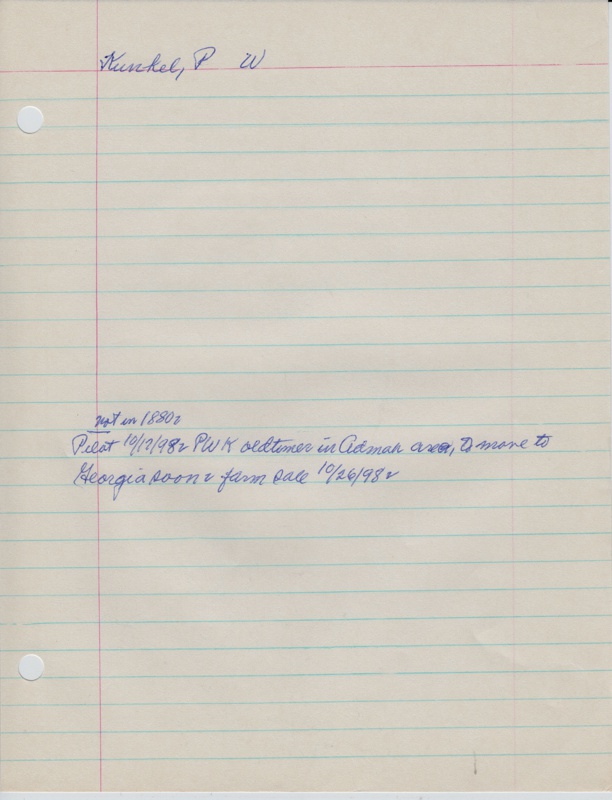 Kunkel, P W
not in 1880
Pilot 10/12/98 PWK oldtimer in Admah area, to move to
Georgia soon farm sale 10/26/98